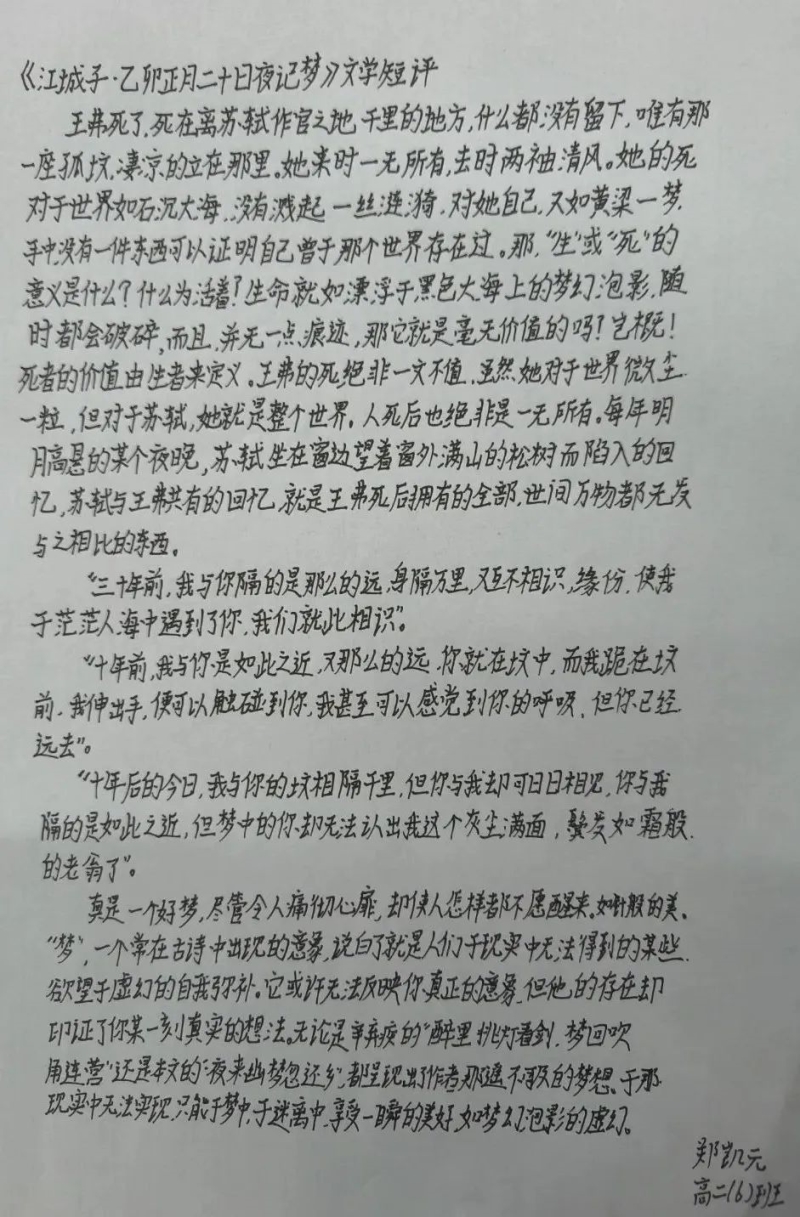 《江城子·乙卯正月二十日夜记梦》文学短评
王弗死了,死在离苏轼作官之地千里的地方,什么都没有留下,唯有那
一座孤坟,凄凉的立在那里。她来时一无所有,去时两袖清风。她的死
对于世界如石沉大海,没有溅起一丝涟漪,对她自己,又如黄梁一梦,
手中没有一件东西可以证明自己曾于那个世界存在过。那,“生”或“死”的
意义是什么?什么为活着?生命就如漂浮于黑色大海上的梦幻泡影,随
时都会破碎,而且,并无一点痕迹,那它就是毫无价值的吗?岂概!
死者的价值由生者来定义。王弗的死绝非一文不值,虽然她对于世界微尘
一粒,但对于苏轼,她就是整个世界。人死后也绝非是一无所有。每年明
月高悬的某个夜晚,苏轼坐在窗边望着窗外满山的松树而陷入的回
忆,苏轼与王弗共有的回忆,就是王弗死后拥有的全部,世间万物都无发
与之相比的东西。
“三十年前,我与你隔的是那么的远,身隔万里,又互不相识,缘份,使我
于茫茫人海中遇到了你,我们就此相识”。
“十年前,我与你是如此之近,又那么的远,你就在坟中,而我跪在坟
前,我伸出手,便可以触碰到你,我甚至可以感觉到你的呼吸,但你已经
远去”。
“十年后的今日,我与你的坟相隔千里,但你与我却可日日相见,你与我
隔的是如此之近,但梦中的你却无法认出我这个灰尘满面,鬓发如霜般
的老翁了”。
真是一个好梦,尽管令人痛彻心扉,却使人怎样都不愿醒来。如针般的美、
“梦”,一个常在古诗中出现的意象,说白了就是人们于现实中无法得到的某些
欲望于虚幻的自我弥补。它或许无法反映你真正的意象,但他的存在却
印证了你某一刻真实的想法。无论是辛弃疾的“醉里挑灯看剑,梦回吹
角连营”还是本文的“夜来幽梦忽还乡”,都呈现出了作者那遥不可及的梦想、于那
现实中无法实现,只能于梦中,于迷离中,享受一瞬的美好,如梦幻泡影的虚幻。
郑凯元
高二(6)班